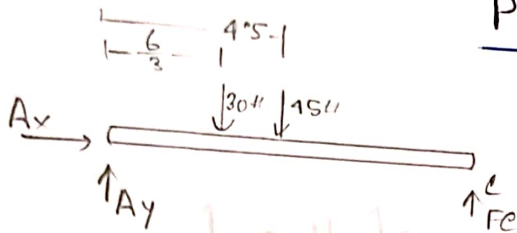 P
4.5
6
3
30"
45"
Ax
Ay
C
FC